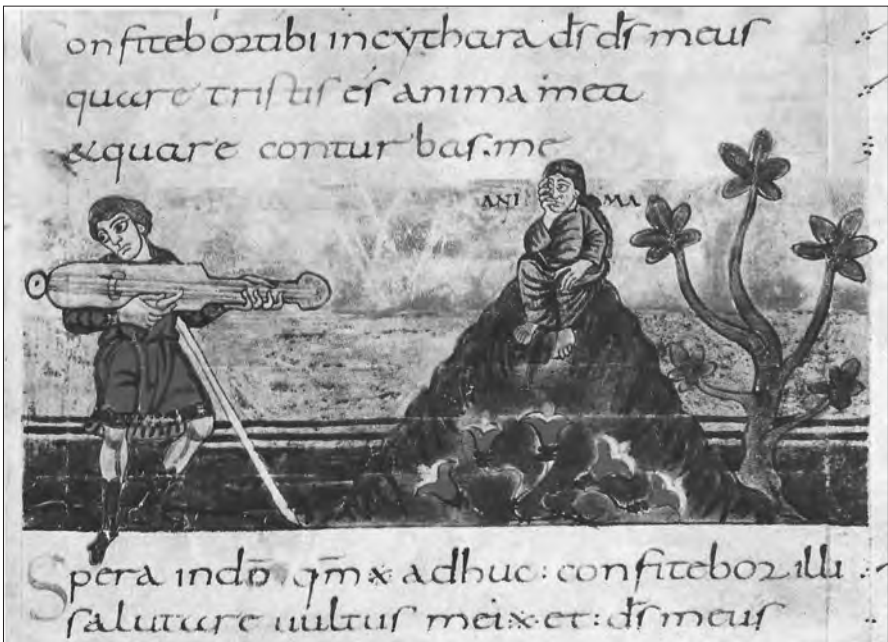 Confitebortibi incythara ds ds meus
quare tristis es anima mea
&quare conturbas.me
ANI MA
Spera indō qm̄ x adhuc: confitebor illi
salutare uultus mei:x·et: ds meus